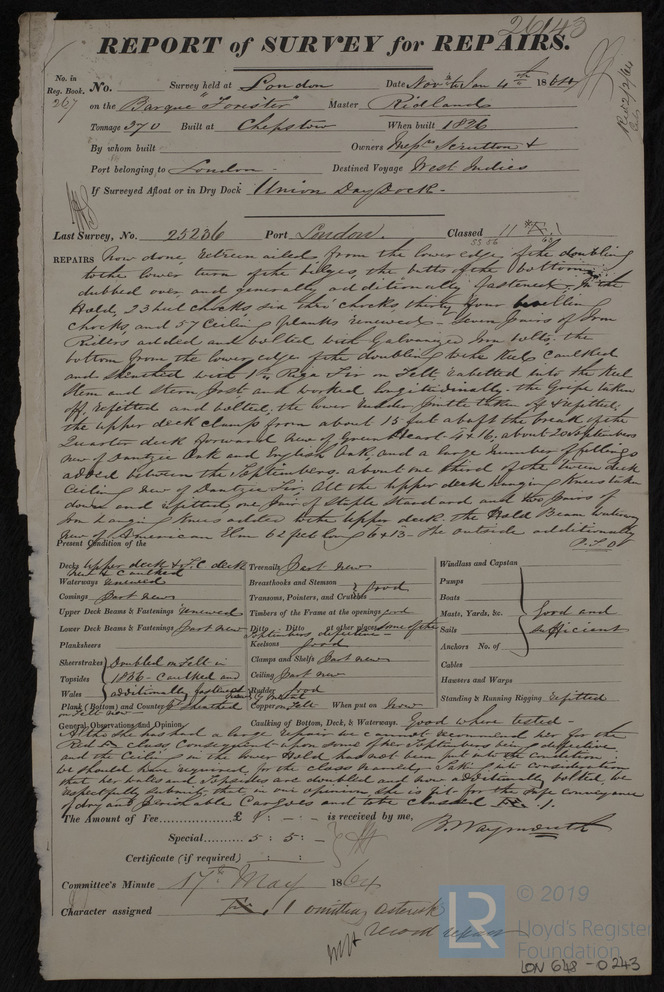 26143
REPORT of SURVEY for REPAIRS.
No. in Reg. Book. 267
No. Survey held at London Date Nov to Jan 4th 1864
on the Barque "Forester" Master Ridland
Tonnage 370 Built at Chepstow When built 1826
By whom built Owners Messrs Scrutton &
Port belonging to London Destined Voyage West Indies
If Surveyed Afloat or in Dry Dock Union Dry Dock
Last Survey, No. 25236 Port London. Classed 11
REPAIRS Now done, Extreenailed from the lower edge of the doubling
to the lower turn of the bilges, the butts of the bottom
dubbed over, and generally additionally fastened. In the
Hold, 23 heel chocks, six chocks, thirty four
chocks, and 57 Ceiling planks renewed - Seven pairs of Iron
Riders added and bolted with Galvanized Iron bolts. the
bottom from the lower edge of the doubling to the Keel caulked
and sheathed with 1¼ Riga Fir on Felt rabetted into the Keel
Stem and Stern post and worked longitudinally. the Gripe taken
off, refitted and bolted; the lower Rudder pintle taken off & refitted,
the upper deck clamps from about 15 feet abaft the break of the
Quarter deck forward new of Green heart 4 x 16; about 20 Septembers
new of Dantzic Oak and English Oak, and a large number of fillings
added between the Septembers. about one third of the tween deck
Ceiling new of Dantzic Fir. All the upper deck hanging Knees taken
down and refitted, one pair of Staple Standard and two pairs of
Iron hanging Knees added to the upper deck. the Hold Beam
new of American Elm 62 feet long 6 x 13 - the outside additionally
P.T.O
Present Condition of the
Decks Upper deck & T.C deck new & caulked
Waterways renewed
Comings Part new
Upper Deck Beams & Fastenings renewed
Lower Deck Beams & Fastenings Part new
Planksheers
Sheerstrakes
Topsides
Wales
Doubled on Felt in
1856 - Caulked and
additionally fastened
Plank (Bottom) and Counter Sheathed on Felt now
Treenails Part new
Breasthooks and Stemson
Transoms, Pointers, and Crutches
Good
Timbers of the Frame at the openings good
Ditto Ditto at other places some of the Septembers defective
Keelsons Good
Clamps and Shelfs Part new
Ceiling Part new
Rudder Good
Copper on Felt When put on Now
Windlass and Capstan
Pumps
Boats
Masts, Yards, &c.
Sails
Anchors No. of
Cables
Hawsers and Warps
Good and
sufficient
Standing & Running Rigging refitted
General Observations and Opinion,
Caulking of Bottom, Deck, & Waterways. Good where tested -
Altho she has had a large repair we cannot recommend her for the
Red class consequent upon some of her Septembers being defective
and the Ceiling in the lower Hold had not been put into the condition
we should have required for the class namely - taking into consideration
that her and Topsides are doubled and now additionally bolted, we
respectfully submit that in our opinion she is fit for the safe conveyance
of dry and perishable Cargoes and to be classed Æ 1.
The Amount of Fee £ : - : - is received by me,
B. Waymouth
Special 5 : 5 : -
Certificate (if required) : :
Committee's Minute 17th May 1864
Character assigned Æ 1 omitting asterisk
record repairs
LR
© 2019
Lloyd's Register
Foundation
LON 648 - 0243